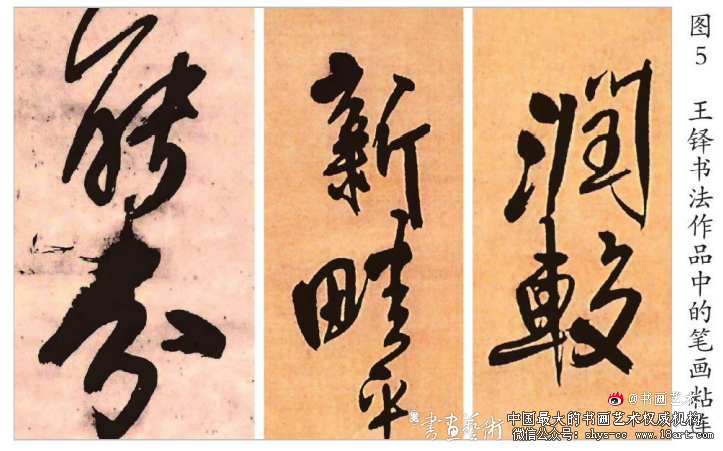 图5 王铎书法作品中的笔画粘连
润较
新晴平
能芬
@书画艺术
書畫藝術
中国最大的书画艺术权威机构
微信公众号：shys-cc www.18art.com